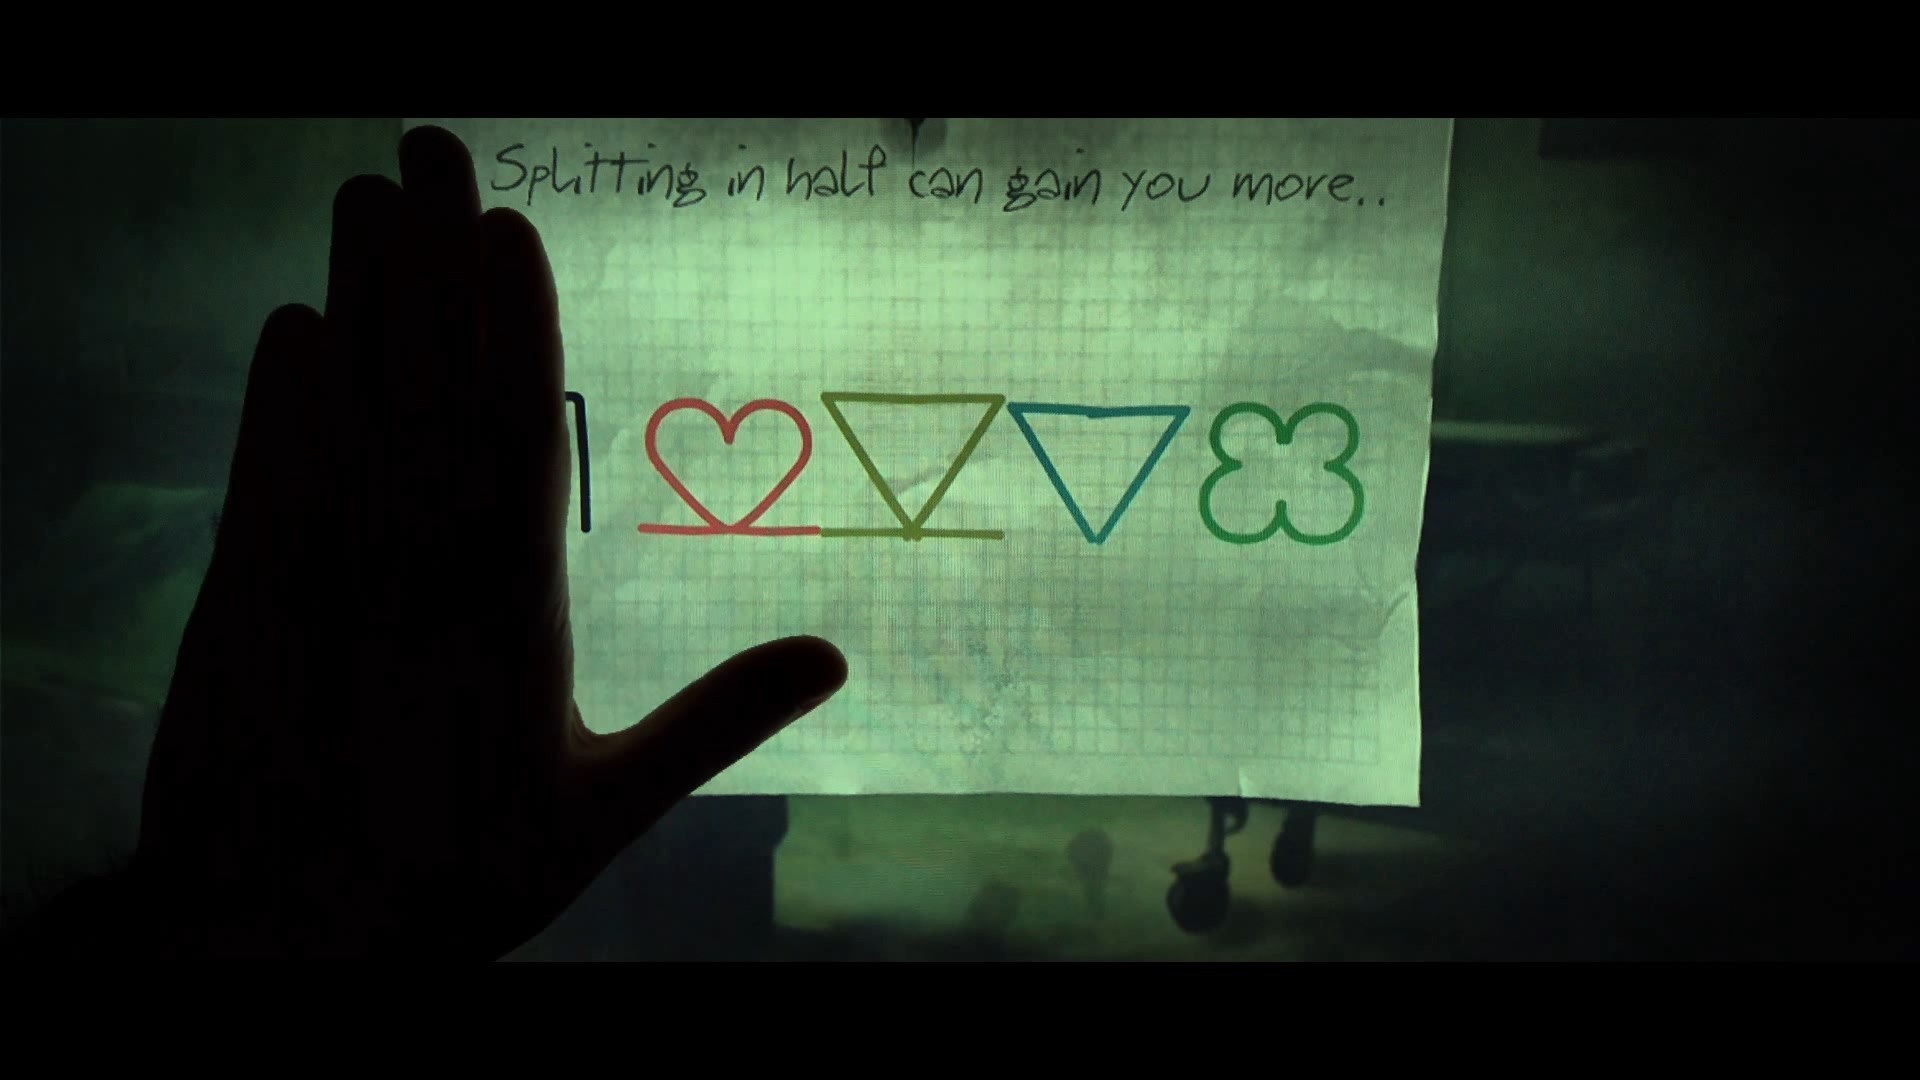 Splitting in half can gain you more..